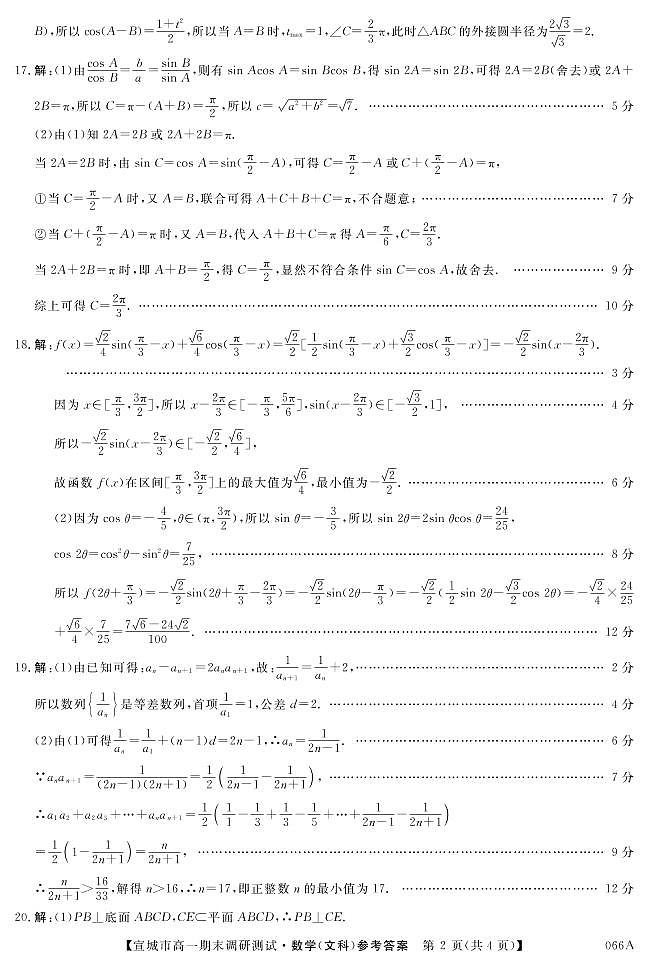 B),所以 cos(A−B)=(1+t²)/2,所以当 A=B 时,t_max=1,∠C=2/3π,此时△ABC 的外接圆半径为 2√3/√3=2.
17.解:(1)由 cos A/cos B=b/a=sin B/sin A,则有 sin Acos A=sin Bcos B,得 sin 2A=sin 2B,可得 2A=2B(舍去)或 2A+
2B=π,所以 C=π−(A+B)=π/2,所以 c=√(a²+b²)=√7. …………………………………………… 5 分
(2)由(1)知 2A=2B 或 2A+2B=π.
当 2A=2B 时,由 sin C=cos A=sin(π/2−A),可得 C=π/2−A 或 C+(π/2−A)=π,
①当 C=π/2−A 时,又 A=B,联合可得 A+C+B+C=π,不合题意; …………………………………… 7 分
②当 C+(π/2−A)=π 时,又 A=B,代入 A+B+C=π 得 A=π/6,C=2π/3.
当 2A+2B=π 时,即 A+B=π/2,得 C=π/2,显然不符合条件 sin C=cos A,故舍去. ………………… 9 分
综上可得 C=2π/3. …………………………………………………………………………… 10 分
18.解:f(x)=√2/4 sin(π/3−x)+√6/4 cos(π/3−x)=√2/2[1/2 sin(π/3−x)+√3/2 cos(π/3−x)]=−√2/2 sin(x−2π/3).
…………………………………………………………………………………………………… 3 分
因为 x∈[π/3,3π/2],所以 x−2π/3∈[−π/3,5π/6],sin(x−2π/3)∈[−√3/2,1], ………………………… 4 分
所以−√2/2 sin(x−2π/3)∈[−√2/2,√6/4],
故函数 f(x)在区间[π/3,3π/2]上的最大值为√6/4,最小值为−√2/2. …………………………………… 6 分
(2)因为 cos θ=−4/5,θ∈(π,3π/2),所以 sin θ=−3/5,所以 sin 2θ=2sin θcos θ=24/25,
cos 2θ=cos²θ−sin²θ=7/25, ……………………………………………………………………… 8 分
所以 f(2θ+π/3)=−√2/2 sin(2θ+π/3−2π/3)=−√2/2 sin(2θ−π/3)=−√2/2(1/2 sin 2θ−√3/2 cos 2θ)=−√2/4×24/25
+√6/4×7/25=(7√6−24√2)/100. ……………………………………………………………………… 12 分
19.解:(1)由已知可得:aₙ−aₙ₊₁=2aₙaₙ₊₁,故:1/aₙ₊₁=1/aₙ+2, …………………………………………… 2 分
所以数列{1/aₙ}是等差数列,首项 1/a₁=1,公差 d=2. ………………………………………………… 4 分
(2)由(1)可得 1/aₙ=1/a₁+(n−1)d=2n−1,∴aₙ=1/(2n−1). …………………………………………… 6 分
∵aₙaₙ₊₁=1/((2n−1)(2n+1))=1/2(1/(2n−1)−1/(2n+1)), ………………………………………………… 7 分
∴a₁a₂+a₂a₃+…+aₙaₙ₊₁=1/2(1/1−1/3+1/3−1/5+…+1/(2n−1)−1/(2n+1))
=1/2(1−1/(2n+1))=n/(2n+1), ……………………………………………………………………… 9 分
∴n/(2n+1)>16/33,解得 n>16,∴n=17,即正整数 n 的最小值为 17. …………………………………… 12 分
20.解:(1)PB⊥底面 ABCD,CE⊂平面 ABCD,∴PB⊥CE.
【宣城市高一期末调研测试·数学(文科)参考答案 第 2 页(共 4 页)】 066A